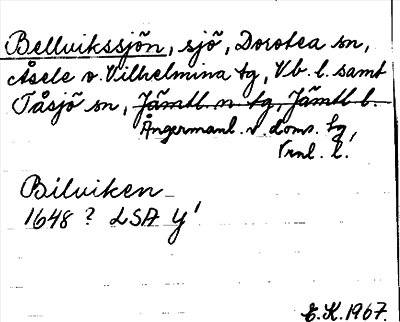 Bellvikssjön, sjö, Dorotea sn,
Åsele o. Vilhelmina tg, Vb. l. samt
Tåsjö sn, Jämtl. n. tg, Jämtl l.
Ångermanl. v. doms. tg,
Vrnl. l.
Bilviken
1648 ? LSA Y'
E.K. 1967.